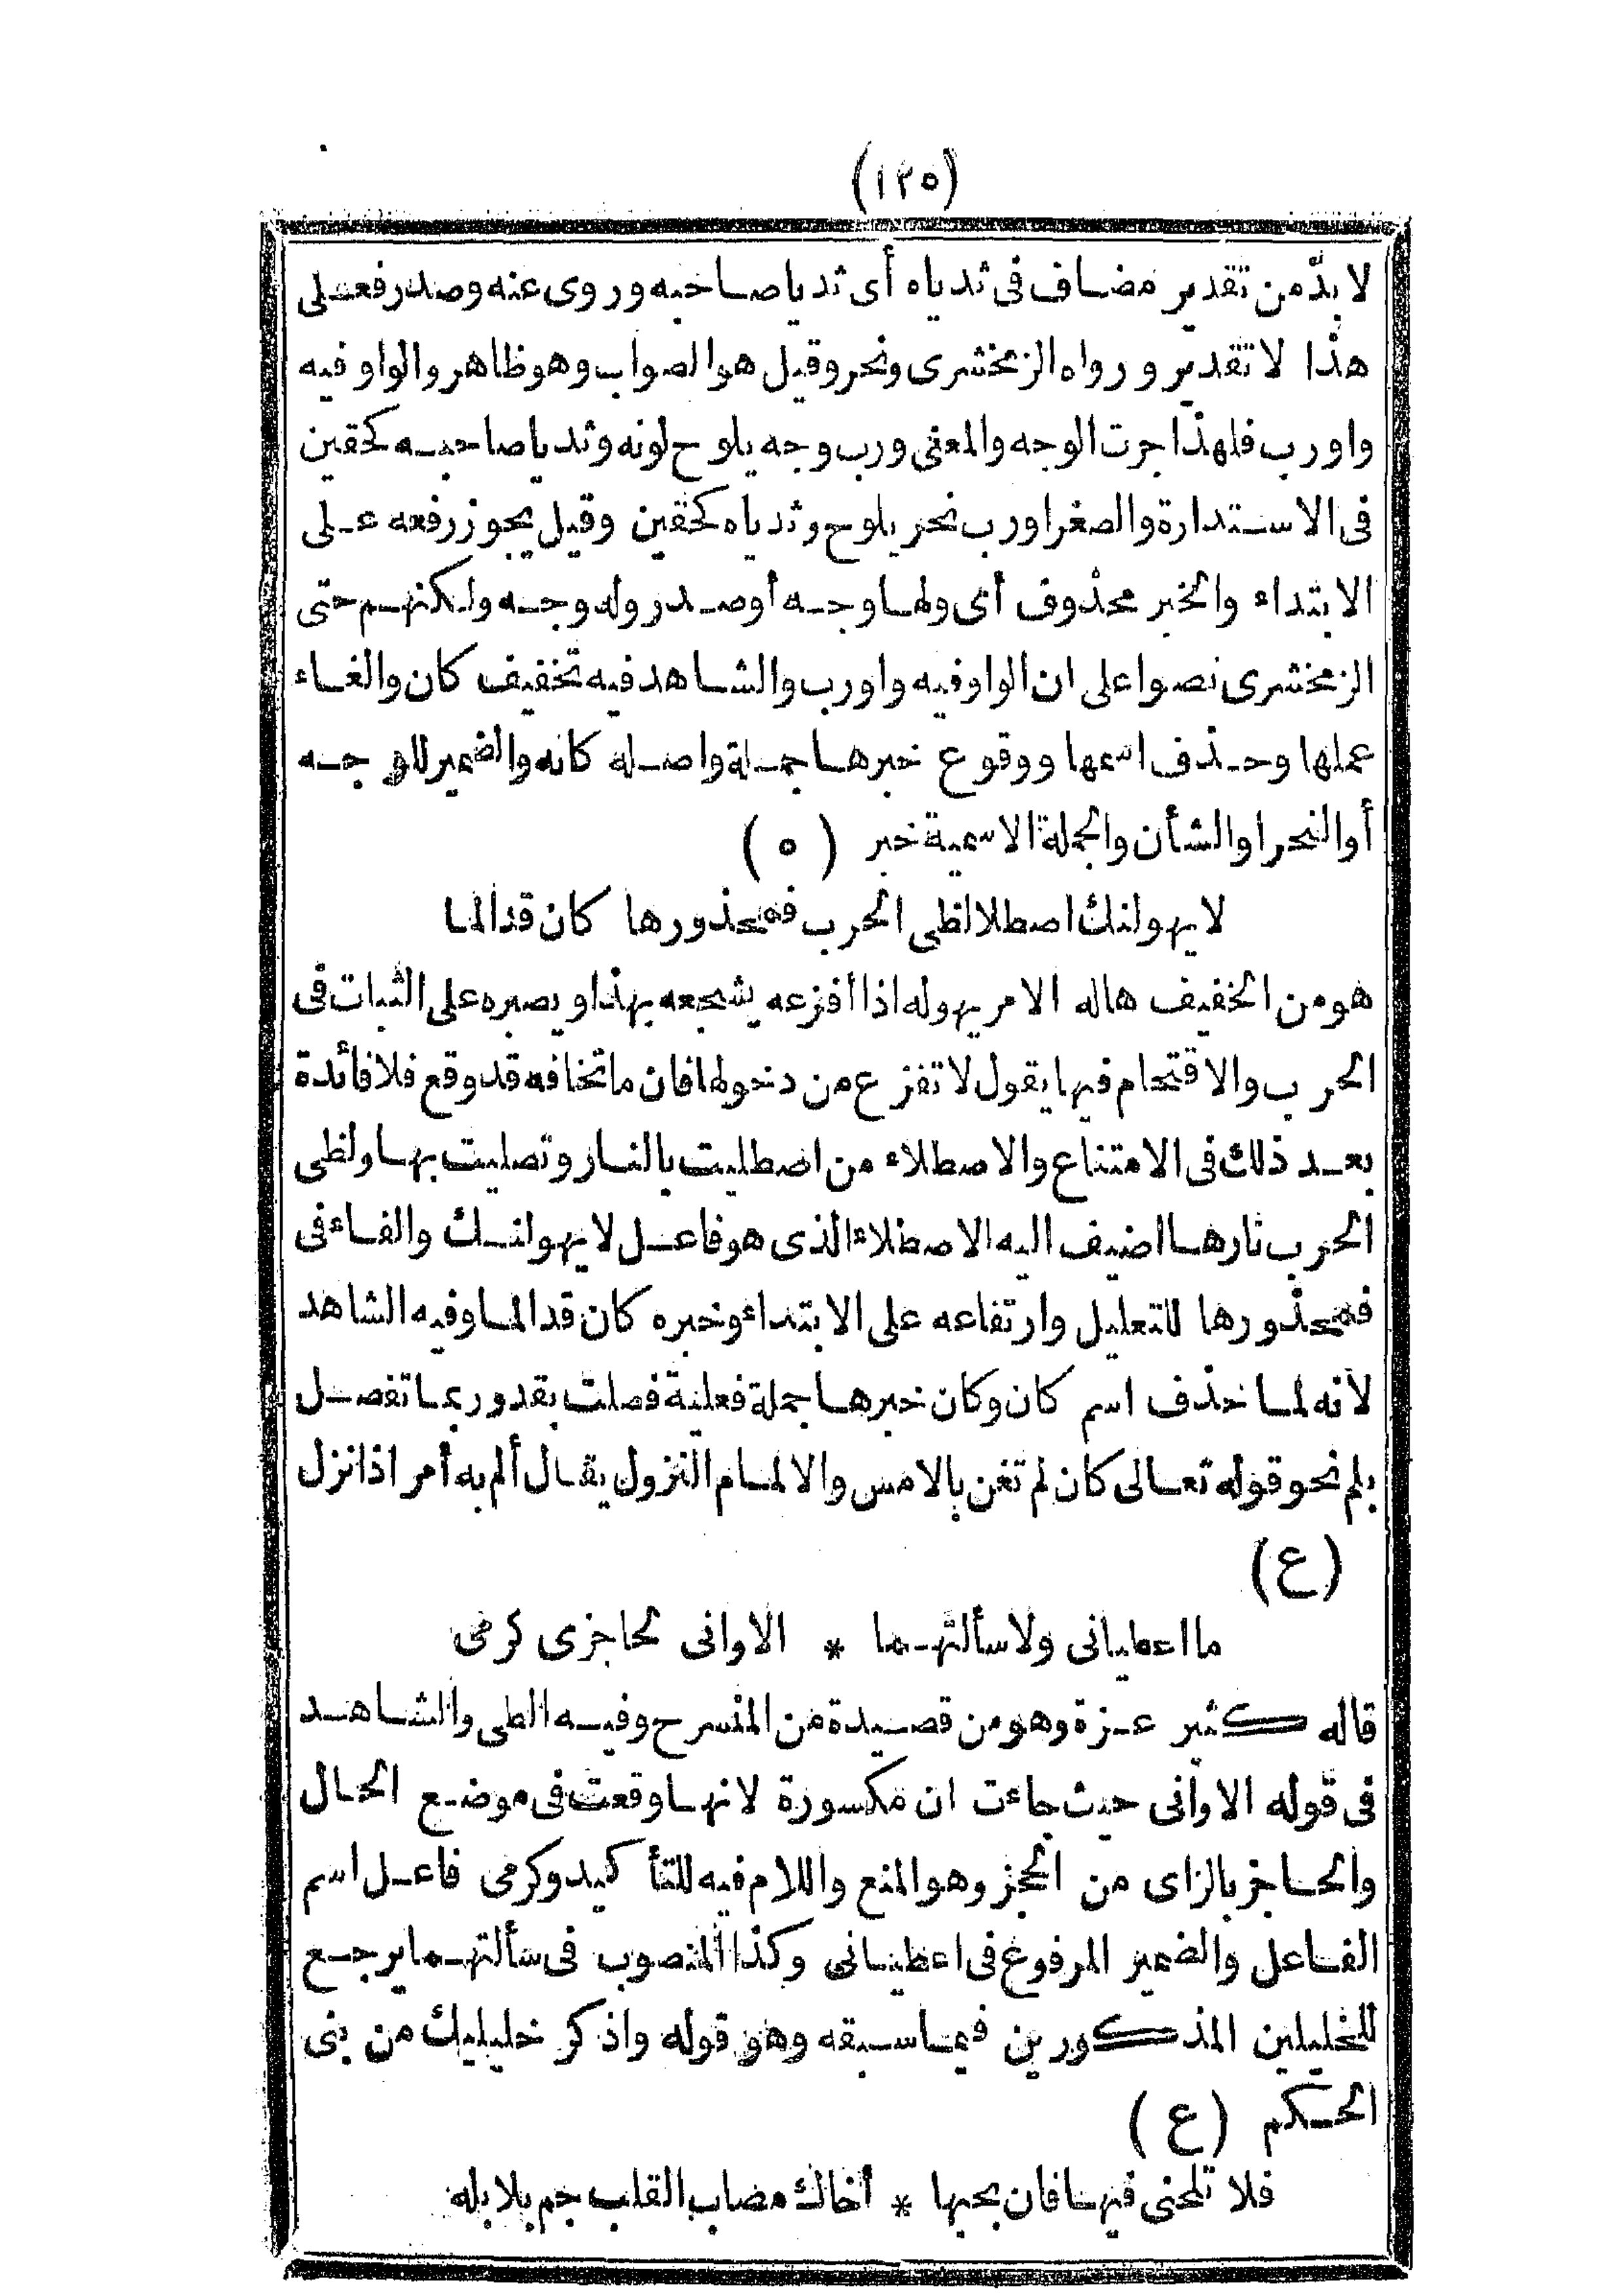 (١٢٥)
لا بدّ من تقدير مضاف فى ثدياه أى ثديا صاحبه وروى عنه وصدر فعلى
هذا لا تقدير ورواه الزمخشرى ونحر وقيل هو الصواب وهو ظاهر والواو فيه
واو رب فلهذا جرت الوجه والمعنى ورب وجه يلوح لونه وثديا صاحبه كحقين
فى الاستدارة والصغر او رب نحر يلوح وثدياه كحقين وقيل يجوز رفعه على
الابتداء والخبر محذوف أى ولها وجه أو صدر وله وجه ولكنهم حتى
الزمخشرى نصوا على ان الواو فيه واو رب والشاهد فيه تخفيف كان والغاء
عملها وحذف اسمها ووقوع خبرها جملة واصله كانه والضمير للوجه
أو النحر او الشأن والجملة الاسمية خبر (٥)
لا يهولنك اصطلا لظى الحرب فمحذورها كان قد الما
هو من الخفيف هاله الامر يهوله اذا أفزعه يشجعه بهذا ويصبره على الثبات فى
الحرب والاقتحام فيها يقول لا تفزع من دخولها فان ما تخافه قد وقع فلا فائدة
بعد ذلك فى الامتناع والاصطلاء من اصطليت بالنار وتصليت بها ولظى
الحرب نارها اضيف اليه الاصطلاء الذى هو فاعل لا يهولنك والفاء فى
فمحذورها للتعليل وارتفاعه على الابتداء وخبره كان قد الما وفيه الشاهد
لانه لما حذف اسم كان وكان خبرها جملة فعلية فصلت بقد وربما تفصل
بلم نحو قوله تعالى كان لم تغن بالامس والالمام النزول يقال ألم به أمر اذا نزل
(ع)
ما اعطيانى ولا سألتهما * الا وانى لحاجزى كرمى
قاله كثير عزة وهو من قصيدة من المنسرح وفيه الطى والشاهد
فى قوله الا وانى حيث جاءت ان مكسورة لانها وقعت فى موضع الحال
والحاجز بالزاى من الحجز وهو المنع واللام فيه للتأكيد وكرمى فاعل اسم
الفاعل والضمير المرفوع فى اعطيانى وكذا المنصوب فى سألتهما يرجع
للخليلين المذكورين فيما سبقه وهو قوله واذكر خليليك من بنى
الحكم (ع)
فلا تلحنى فيها فان بحبها * أخاك مصاب القلب جم بلابله